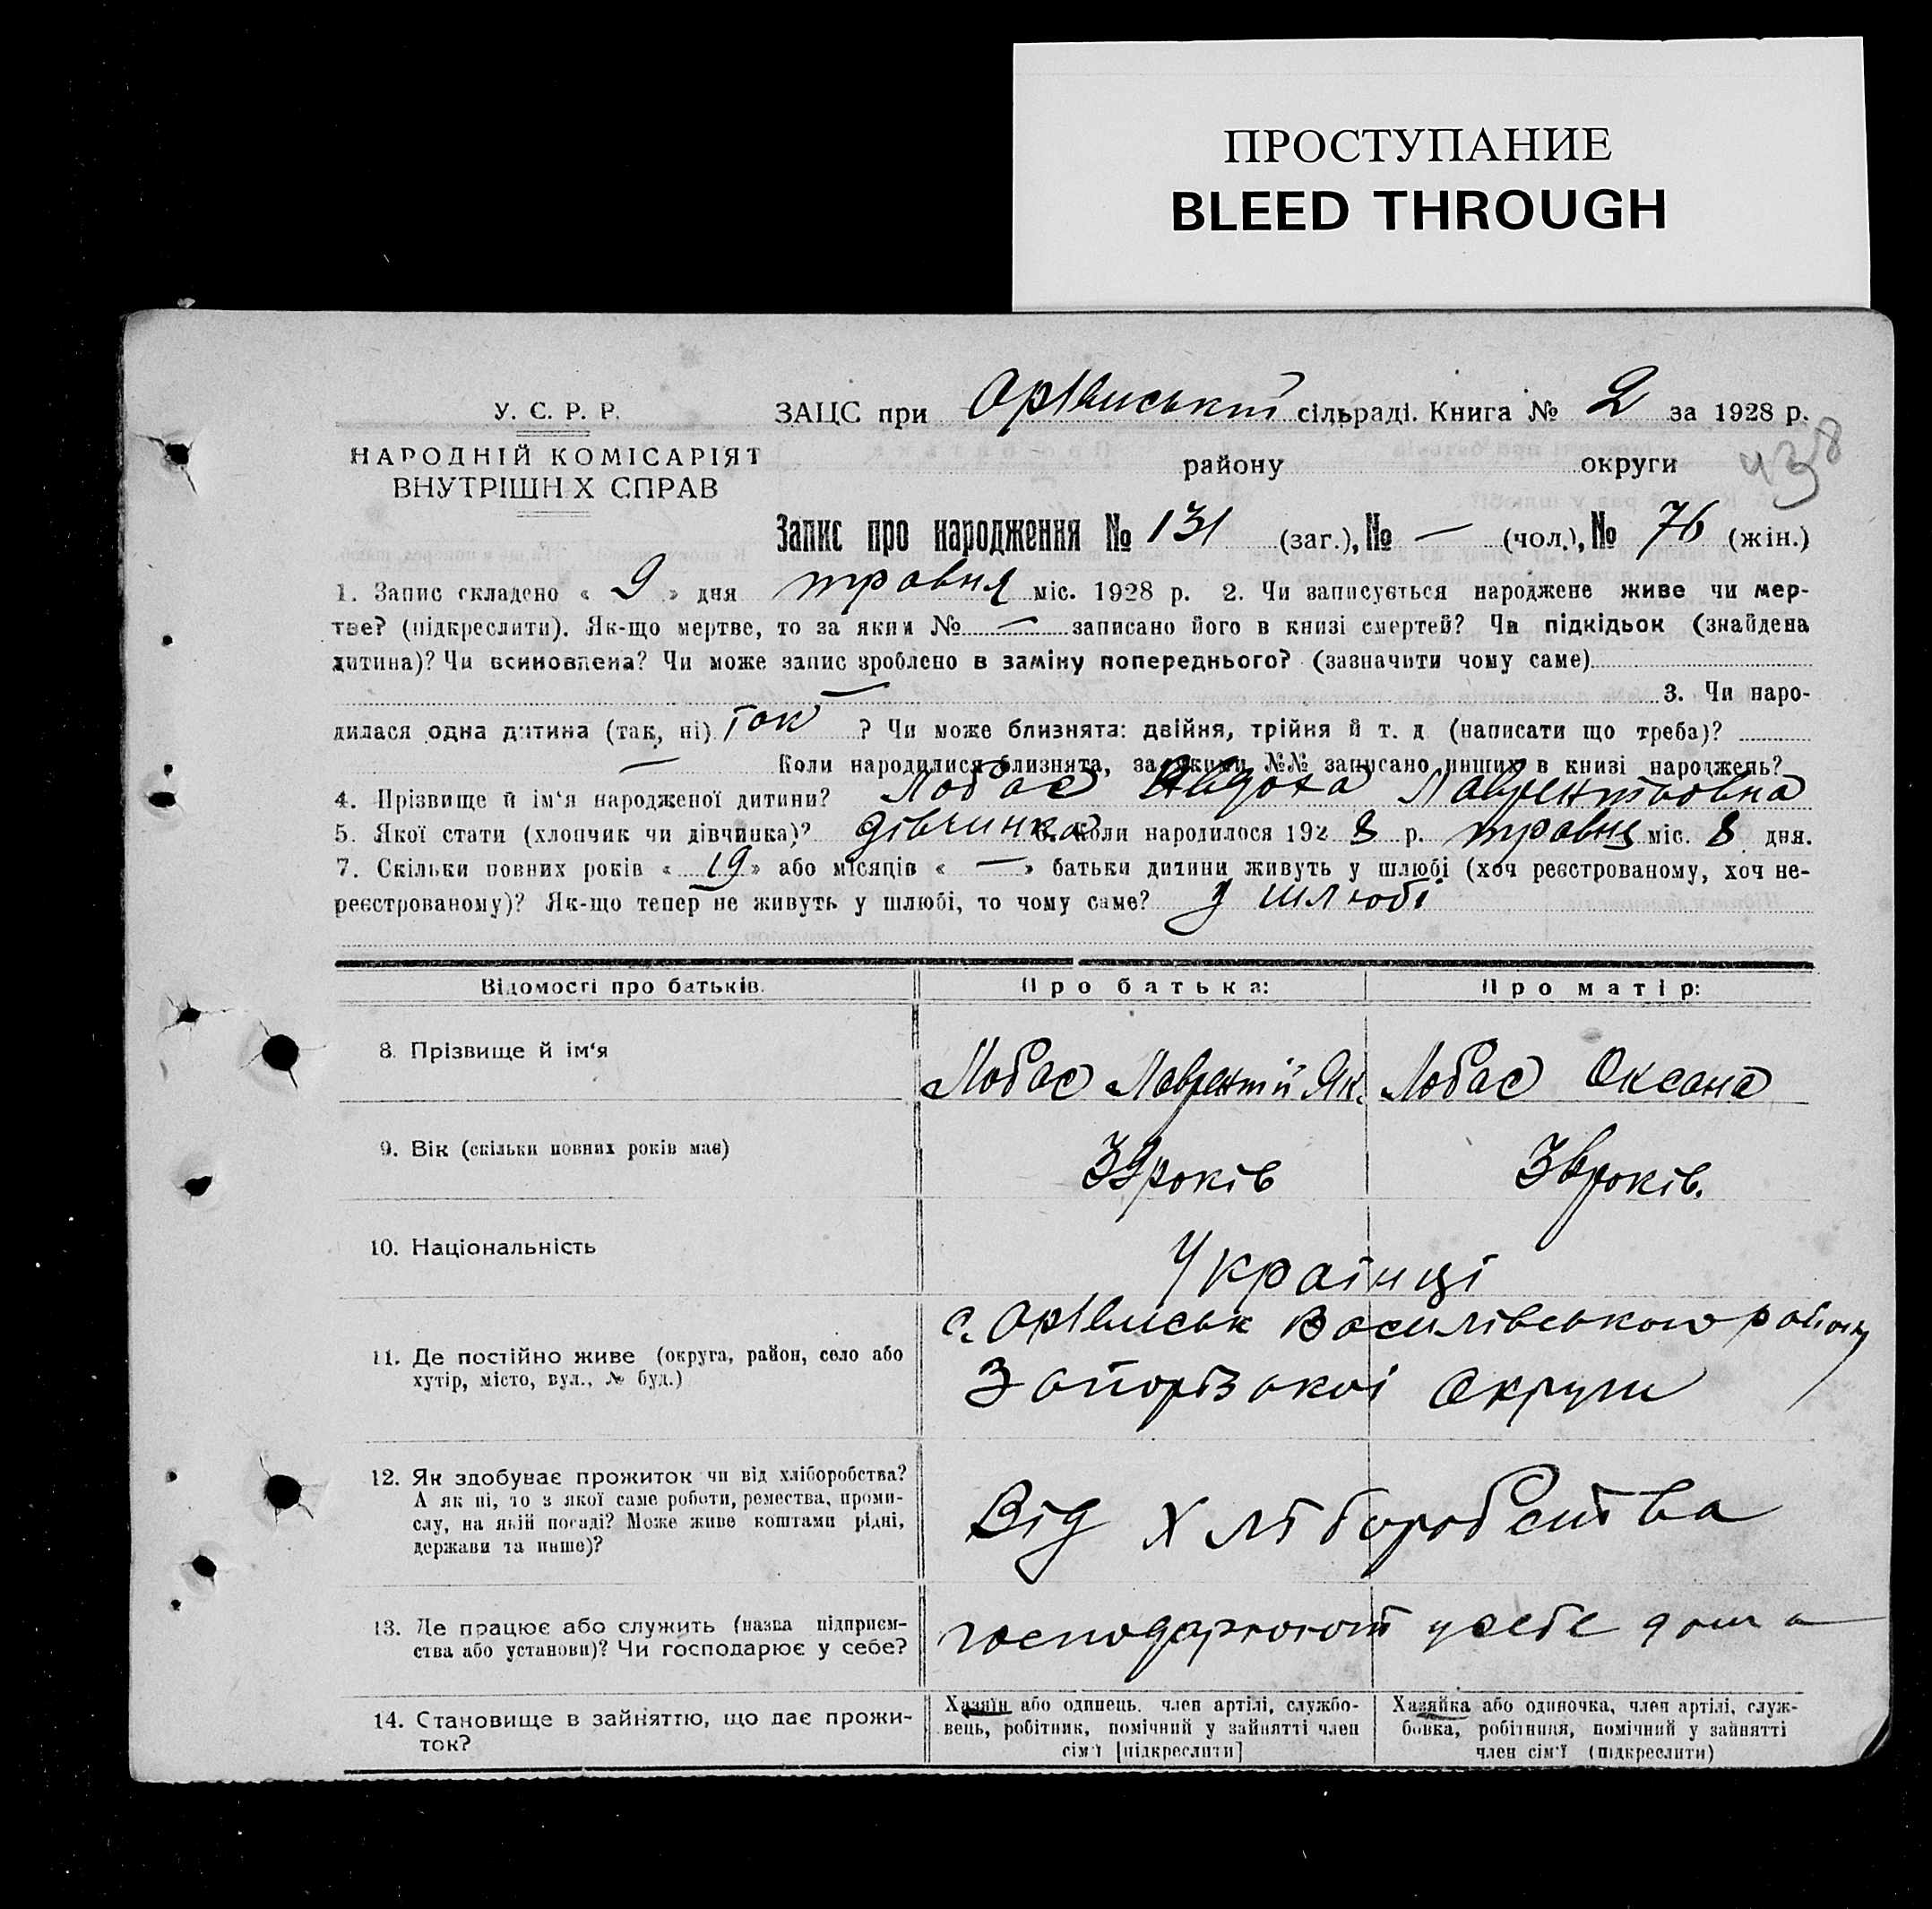 ПРОСТУПАНИЕ
BLEED THROUGH
У. С. Р. Р.
НАРОДНІЙ КОМІСАРІЯТ
ВНУТРІШН Х СПРАВ
ЗАЦС при Орłвиський сільраді. Книга № 2 за 1928 р.
району округи
438
Запис про народження № 131 (заг.), № — (чол.), № 76 (жін.)
1. Запис складено « 9 » дня травня міс. 1928 р. 2. Чи записується народжене живе чи мер-
тве? (підкреслити). Як-що мертве, то за яким № — записано його в книзі смертей? Чи підкідьок (знайдена
дитина)? Чи всиновлена? Чи може запис зроблено в заміну попереднього? (зазначити чому саме)
— 3. Чи наро-
дилася одна дитина (так, ні) так ? Чи може близнята: двійня, трійня й т. д (написати що треба)?
— Коли народилися близнята, за якими №№ записано инших в книзі народжень?
4. Прізвище й ім'я народженої дитини? Лобас Явдоха Лаврентіовна
5. Якої стати (хлопчик чи дівчинка)? дівчинка 6. Коли народилося 1928 р. травня міс. 8 дня.
7. Скільки повних років « 19 » або місяців « — » батьки дитини живуть у шлюбі (хоч реєстрованому, хоч не-
реєстрованому)? Як-що тепер не живуть у шлюбі, то чому саме? у шлюбі
Відомості про батьків. Про батька: Про матір:
8. Прізвище й ім'я Лобас Лаврентій Як. Лобас Оксана
9. Вік (скільки повних років має) 39 років 36 років.
10. Національність Українці
11. Де постійно живе (округа, район, село або
хутір, місто, вул., № буд.)
с. Василівського району
Запорізької округи
12. Як здобуває прожиток чи від хліборобства?
А як ні, то з якої саме роботи, ремества, проми-
слу, на якій посаді? Може живе коштами рідні,
держави та инше)?
Від хліборобства
13. Де працює або служить (назва підприєм-
ства або установи)? Чи господарює у себе?
господарюють у себе дома
14. Становище в зайняттю, що дає прожи-
ток?
Хазяїн або одинець, член артілі, службо-
вець, робітник, помічний у зайнятті член
сім'ї [підкреслити]
Хазяйка або одиночка, член артілі, служ-
бовка, робітниця, помічний у зайнятті
член сім'ї (підкреслити)